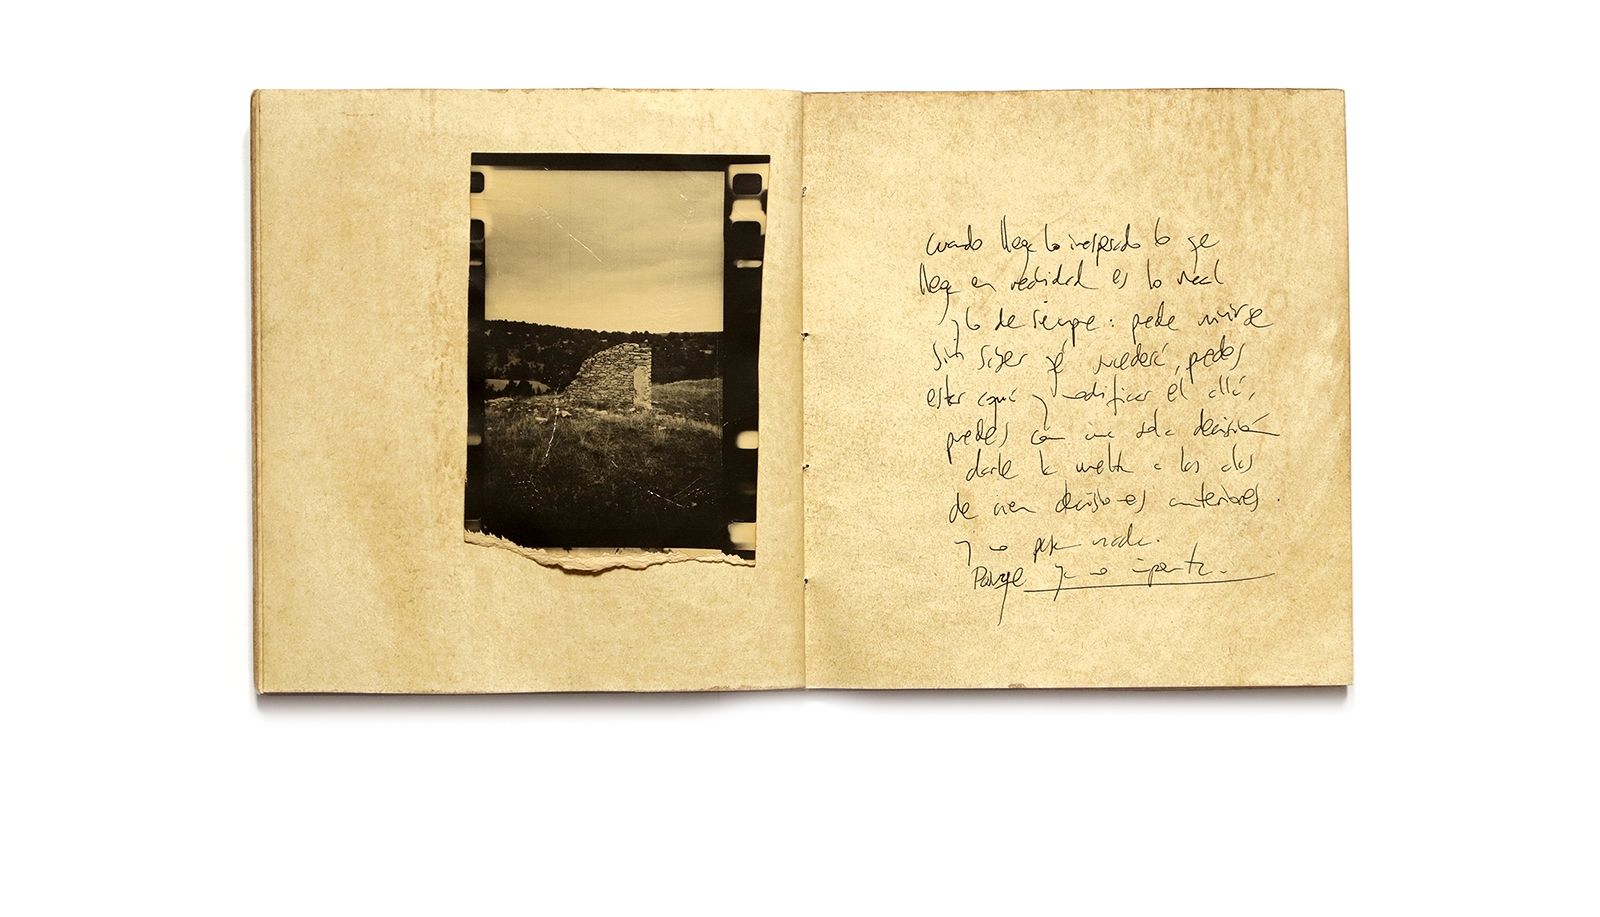 cuando llega lo inesperado lo que
llega en realidad es lo real
y lo de siempre: puede vivirse
sin saber qué sucederá, puedes
estar aquí y modificar el allá,
puedes con una sola decisión
darle la vuelta a las
de cien decisiones anteriores.
y no pasa nada.
Porque ya no importa.